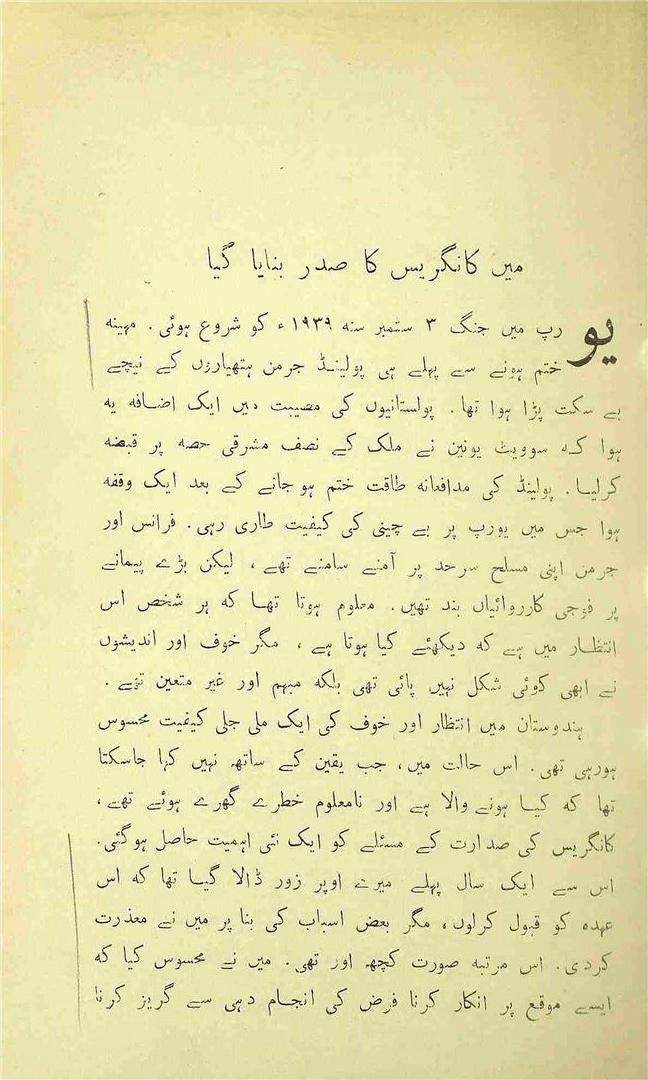 میں کانگریس کا صدر بنایا گیا
یو رپ میں جنگ ۳ ستمبر سنہ ۱۹۳۹ ء کو شروع ہوئی۔ مہینہ
ختم ہونے سے پہلے ہی پولینڈ جرمن ہتھیاروں کے نیچے
بے سکت پڑا ہوا تھا۔ پولستانیوں کی مصیبت میں ایک اضافہ یہ
ہوا کہ سوویٹ یونین نے ملک کے نصف مشرقی حصہ پر قبضہ
کرلیا۔ پولینڈ کی مدافعانہ طاقت ختم ہو جانے کے بعد ایک وقفہ
ہوا جس میں یورپ پر بے چینی کی کیفیت طاری رہی۔ فرانس اور
جرمن اپنی مسلح سرحد پر آمنے سامنے تھے، لیکن بڑے پیمانے
پر فوجی کارروائیاں بند تھیں۔ معلوم ہوتا تھا کہ ہر شخص اس
انتظار میں ہے کہ دیکھئے کیا ہوتا ہے، مگر خوف اور اندیشوں
نے ابھی کوئی شکل نہیں پائی تھی بلکہ مبہم اور غیر متعین تھے۔
ہندوستان میں انتظار اور خوف کی ایک ملی جلی کیفیت محسوس
ہورہی تھی۔ اس حالت میں، جب یقین کے ساتھ نہیں کہا جاسکتا
تھا کہ کیا ہونے والا ہے اور نامعلوم خطرے گھرے ہوئے تھے،
کانگریس کی صدارت کے مسئلے کو ایک نئی اہمیت حاصل ہوگئی۔
اس سے ایک سال پہلے میرے اوپر زور ڈالا گیا تھا کہ اس
عہدہ کو قبول کرلوں، مگر بعض اسباب کی بنا پر میں نے معذرت
کردی۔ اس مرتبہ صورت کچھ اور تھی۔ میں نے محسوس کیا کہ
ایسے موقع پر انکار کرنا فرض کی انجام دہی سے گریز کرنا